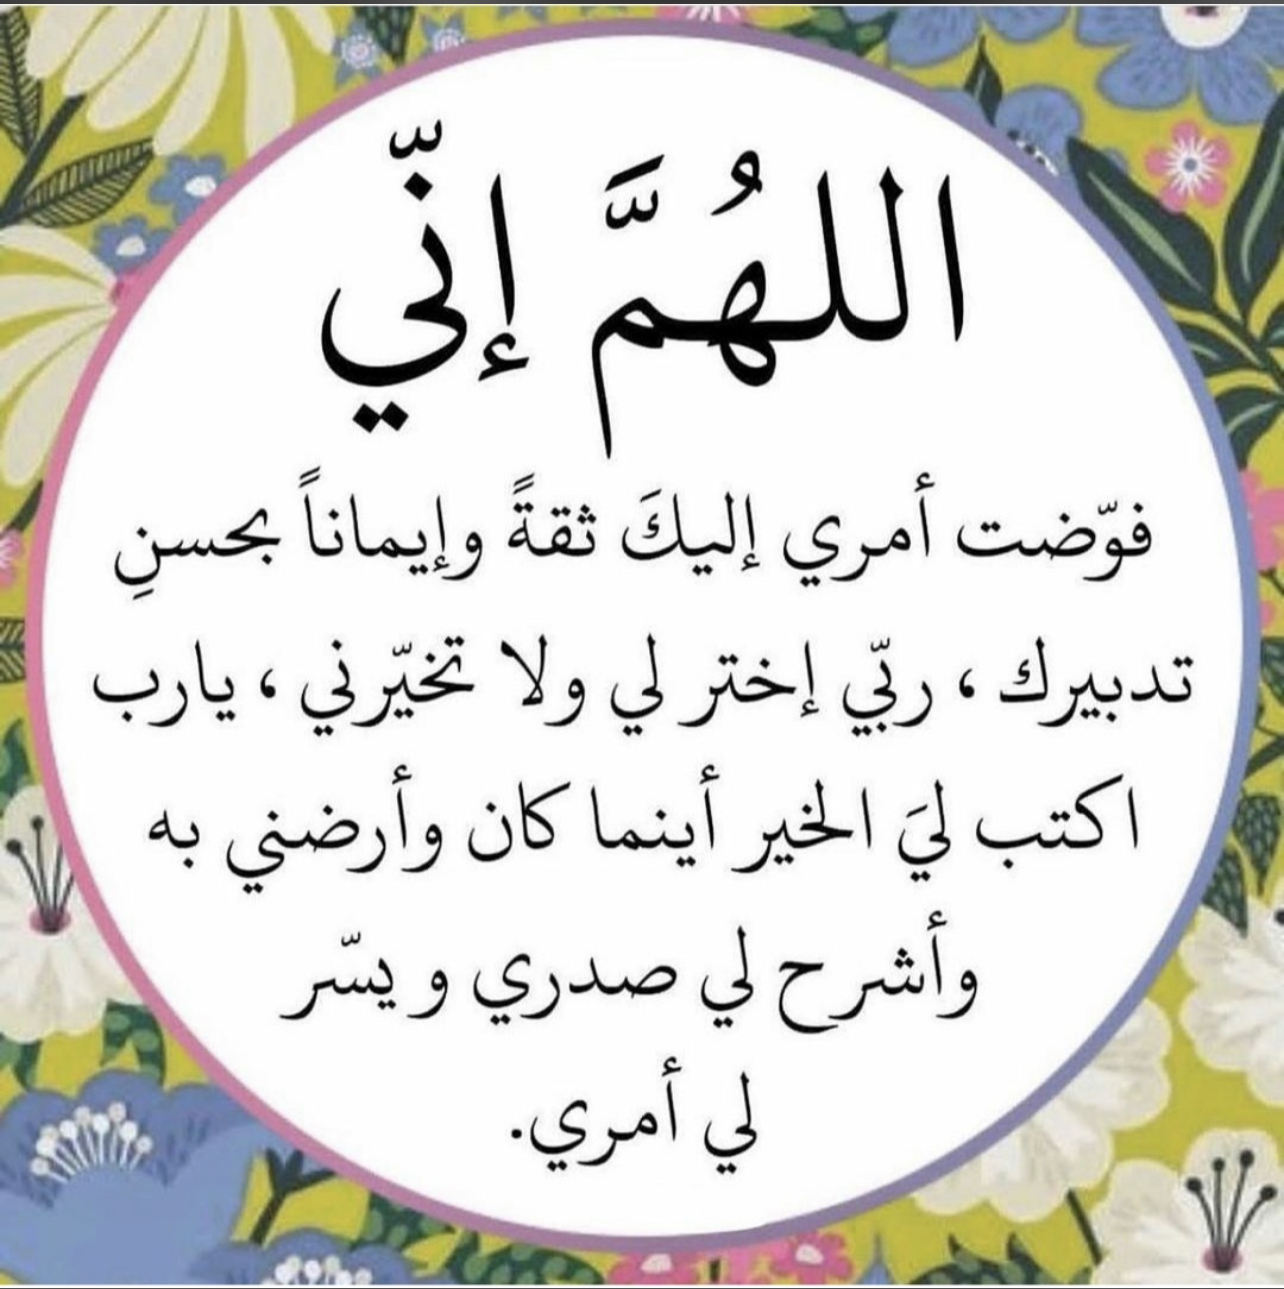 اللهُمَّ إنّي
فوّضت أمري إليكَ ثقةً وإيماناً بحسنِ
تدبيرك ، ربّي إختر لي ولا تخيّرني ، يارب
اكتب ليَ الخير أينما كان وأرضني به
وأشرح لي صدري و يسّر
لي أمري.